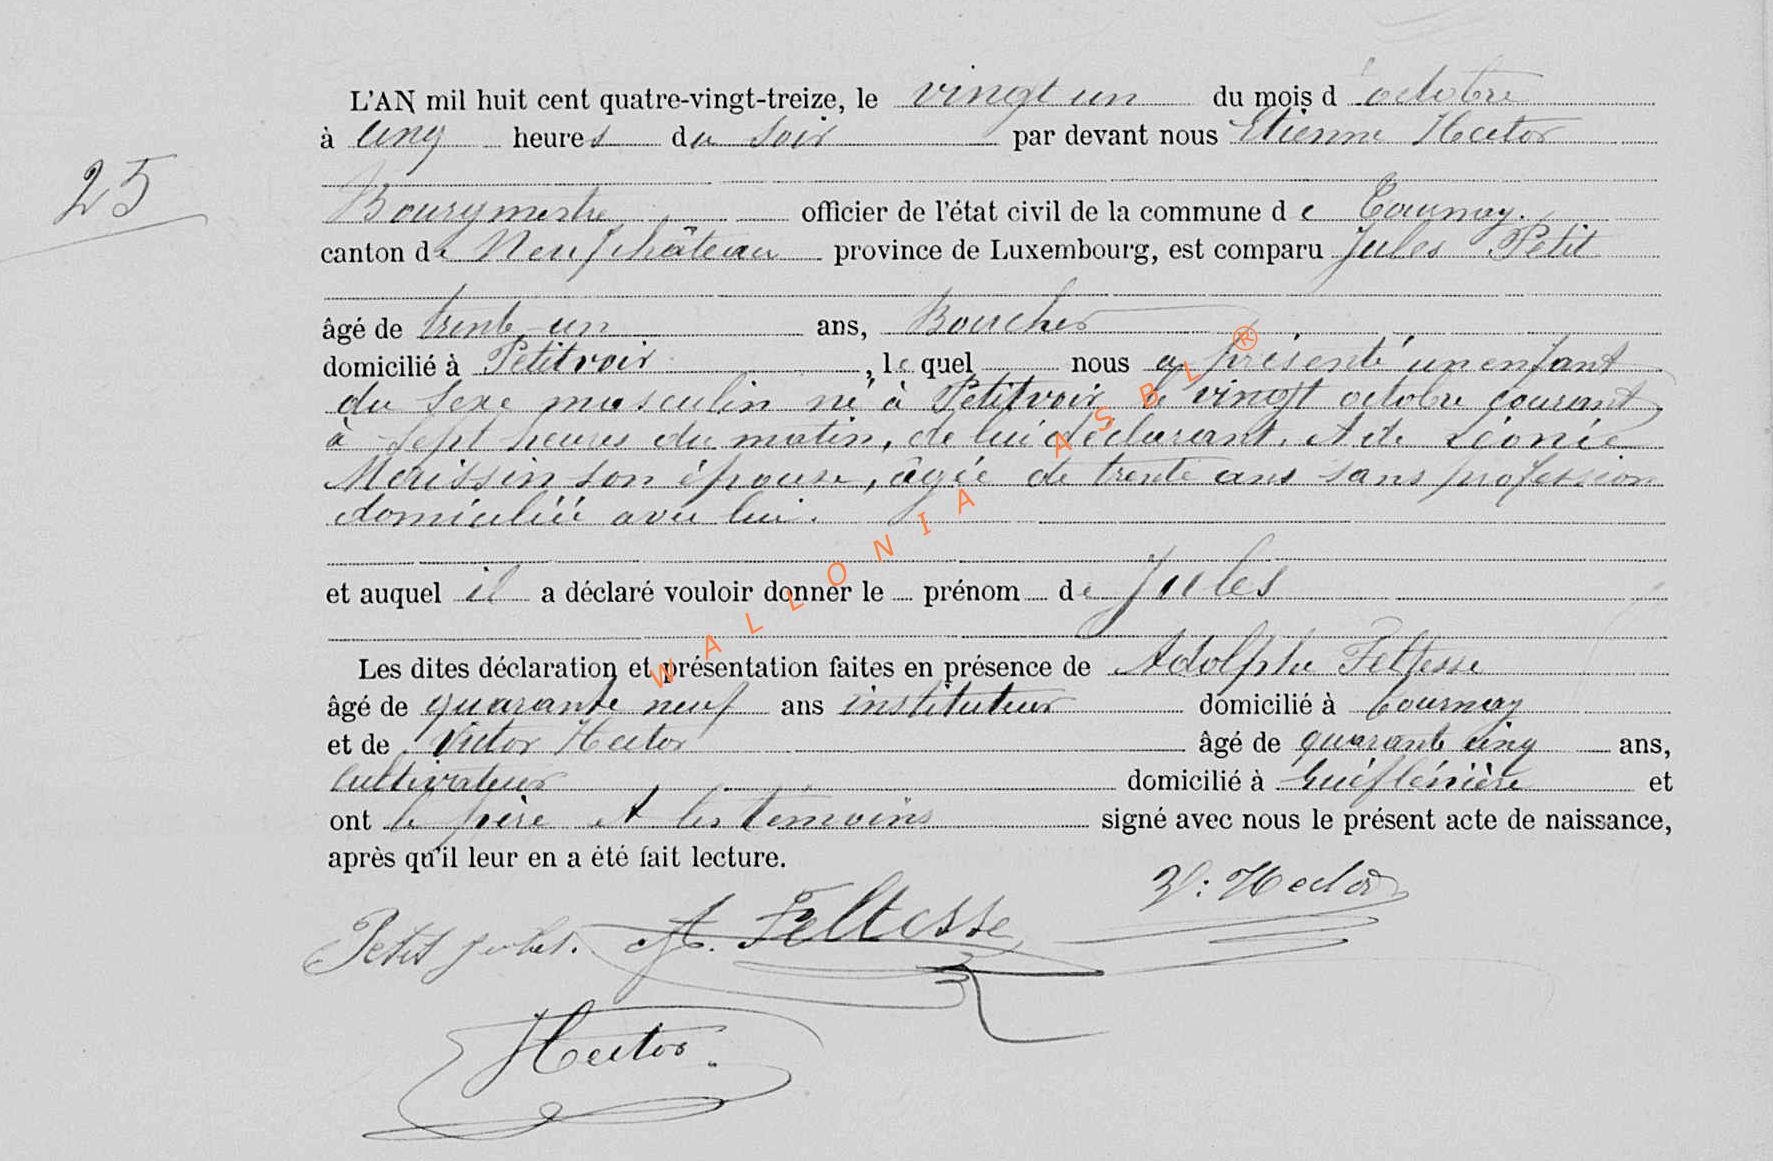 L'AN mil huit cent quatre-vingt-treize, le vingt un du mois d'octobre
à cinq heures du soir par devant nous Etienne Hector
25
Bourgmestre officier de l'état civil de la commune de Tournay.
canton de Neufchâteau province de Luxembourg, est comparu Jules Petit
âgé de trente un ans, Boucher
domicilié à Petitvoir, lequel nous a présenté un enfant
du sexe masculin né à Petitvoir le vingt octobre courant,
à sept heures du matin, de lui déclarant. et de Léonie
son épouse, âgée de trente ans sans profession
domiciliée avec lui.
et auquel il a déclaré vouloir donner le prénom de Jules
Les dites déclaration et présentation faites en présence de Adolphe Feltesse
âgé de quarante neuf ans instituteur domicilié à Tournay
et de Victor Hector âgé de quarante cinq ans,
cultivateur domicilié à et
ont le père et les témoins signé avec nous le présent acte de naissance,
après qu'il leur en a été fait lecture.
V: Hector
Petit jules. A. Feltesse
Hector.
WALLONIA ASBL ®